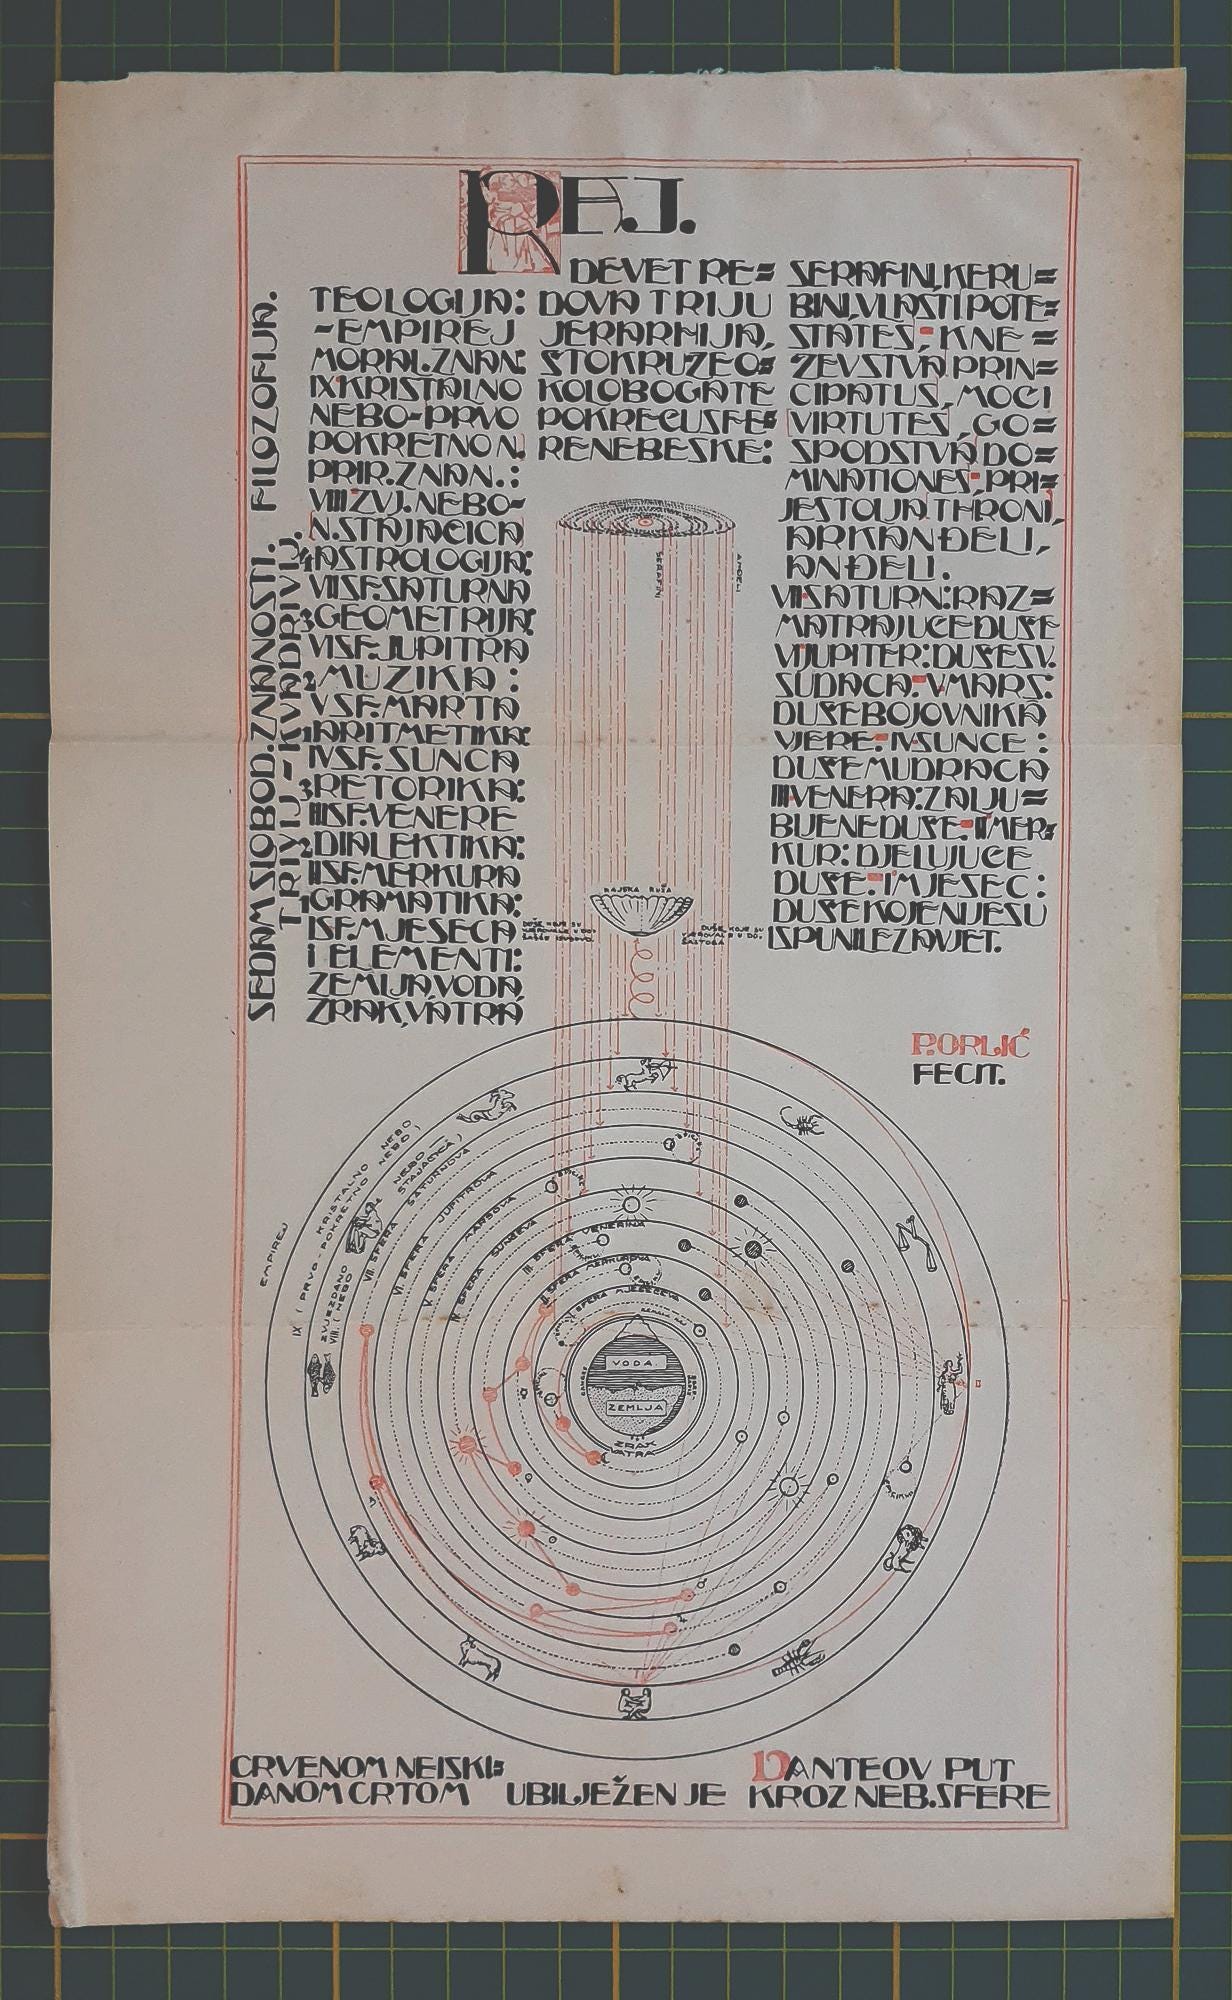 RAJ.
SEDAM SLOBOD. ZNANOSTI. FILOZOFIJA.
TRIVIJ - KVADRIVIJ.
TEOLOGIJA:
-EMPIREJ
MORAL. ZNAN:
IX KRISTALNO
NEBO-PRVO
POKRETNO N.
PRIR. ZNAN.:
VIII ZVJ. NEBO-
N. STAJAĆICA
4 ASTROLOGIJA:
VII SF. SATURNA
3 GEOMETRIJA:
VI SF. JUPITRA
2 MUZIKA:
V SF. MARTA
1 ARITMETIKA:
IV SF. SUNCA
3 RETORIKA:
III SF. VENERE
2 DIALEKTIKA:
II SF. MERKURA
1 GRAMATIKA:
I SF. MJESECA
I ELEMENTI:
ZEMLJA, VODA,
ZRAK, VATRA
DEVET RE=
DOVA TRIJU
JERARHIJA,
ŠTO KRUŽE O=
KOLO BOGA TE
POKREĆU SFE=
RE NEBESKE:
SERAFINI, KERU=
BINI, VLASTI POTE=
STATES, KNE=
ŽEVSTVA PRIN=
CIPATUS, MOĆI
VIRTUTES, GO=
SPODSTVA DO=
MINATIONES, PRI=
JESTOLJA THRONI,
ARKANĐELI,
ANĐELI.
VII SATURN: RAZ=
MATRAJUĆE DUŠE
VI JUPITER: DUŠE SV.
SUDACA. V MARS:
DUŠE BOJOVNIKA
VJERE. IV SUNCE:
DUŠE MUDRACA
III VENERA: ZALJU=
BLJENE DUŠE. II MER=
KUR: DJELUJUĆE
DUŠE. I MJESEC:
DUŠE KOJE NIJESU
ISPUNILE ZAVJET.
SERAFIN
ANĐELI
RAJSKA RUŽA
DUŠE, KOJE SU
VJEROVALE U DO=
ŠAŠĆE ISUSOVO.
DUŠE, KOJE SU
VJEROVALE U DO=
P. ORLIĆ
FECIT.
EMPIREJ
IX ( KRISTALNO NEBO
PRVO-POKRETNO NEBO )
VIII. ( ZVJEZDANO NEBO
NEBO STAJAĆICA )
VII. SFERA SATURNOVA
VI. SFERA JUPITROVA
V. SFERA MARSOVA
IV. SFERA SUNČEVA
III. SFERA VENERINA
II. SFERA MERKUROVA
I SFERA MJESEČEVA
ZEMALJ. RAJ
GANGES
VODA
ZEMLJA
ZRAK
VATRA
CRVENOM NEISKI=
DANOM CRTOM UBILJEŽEN JE
DANTEOV PUT
KROZ NEB. SFERE